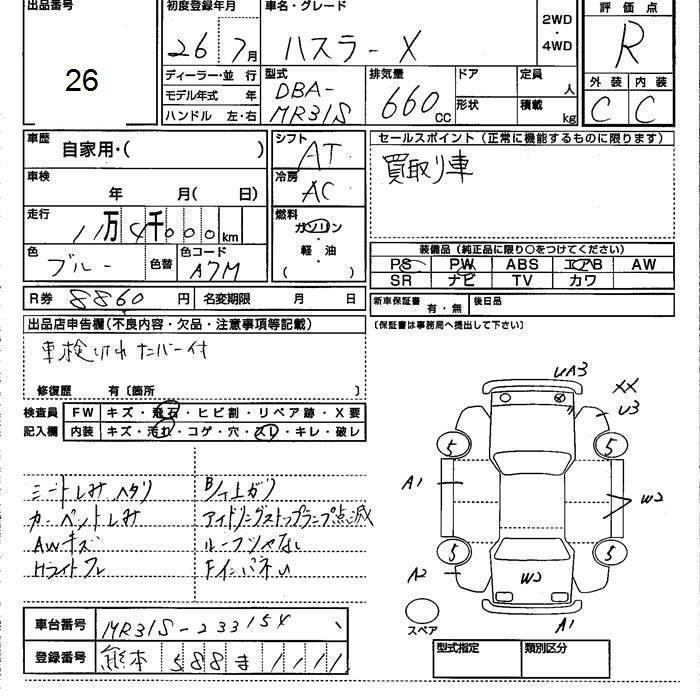 出品番号
26
初度登録年月
26 7月
車名・グレード
ハスラーX
2WD
・
4WD
評価点
R
ディーラー・並 行
モデル年式 年
ハンドル 左・右
型式
DBA-
MR31S
排気量
660CC
ドア
形状
定員
人
積載
kg
外装 内装
C C
車歴
自家用・( )
シフト
AT
セールスポイント(正常に機能するものに限ります)
買取り車
車検
年 月( 日)
冷房
AC
走行
11万4千000km
燃料
ガソリン
・
軽・油
( )
色
ブルー
色替
色コード
A7M
装備品(純正品に限り○をつけてください)
PS PW ABS エアB AW
SR ナビ TV カワ
R券 8860円 名変期限 月 日
新車保証書 有・無 後日品
(保証書は事務局へ提出して下さい)
出品店申告欄(不良内容・欠品・注意事項等記載)
車検切れ ナンバー付
修復歴 有〔箇所 〕
検査員
記入欄
FW キズ・飛石・ヒビ割・リペア跡・X要
内装 キズ・汚れ・コゲ・穴・スレ・キレ・破レ
シートしみ ヘタリ
カーペットしみ
AWキズ
アイドリングストップランプ点滅
UA3
XX
U3
5
5
A1
W2
5
5
A2
W2
A1
スペア
車台番号 MR31S-233154
登録番号 熊本 588 ま 1111
型式指定 類別区分